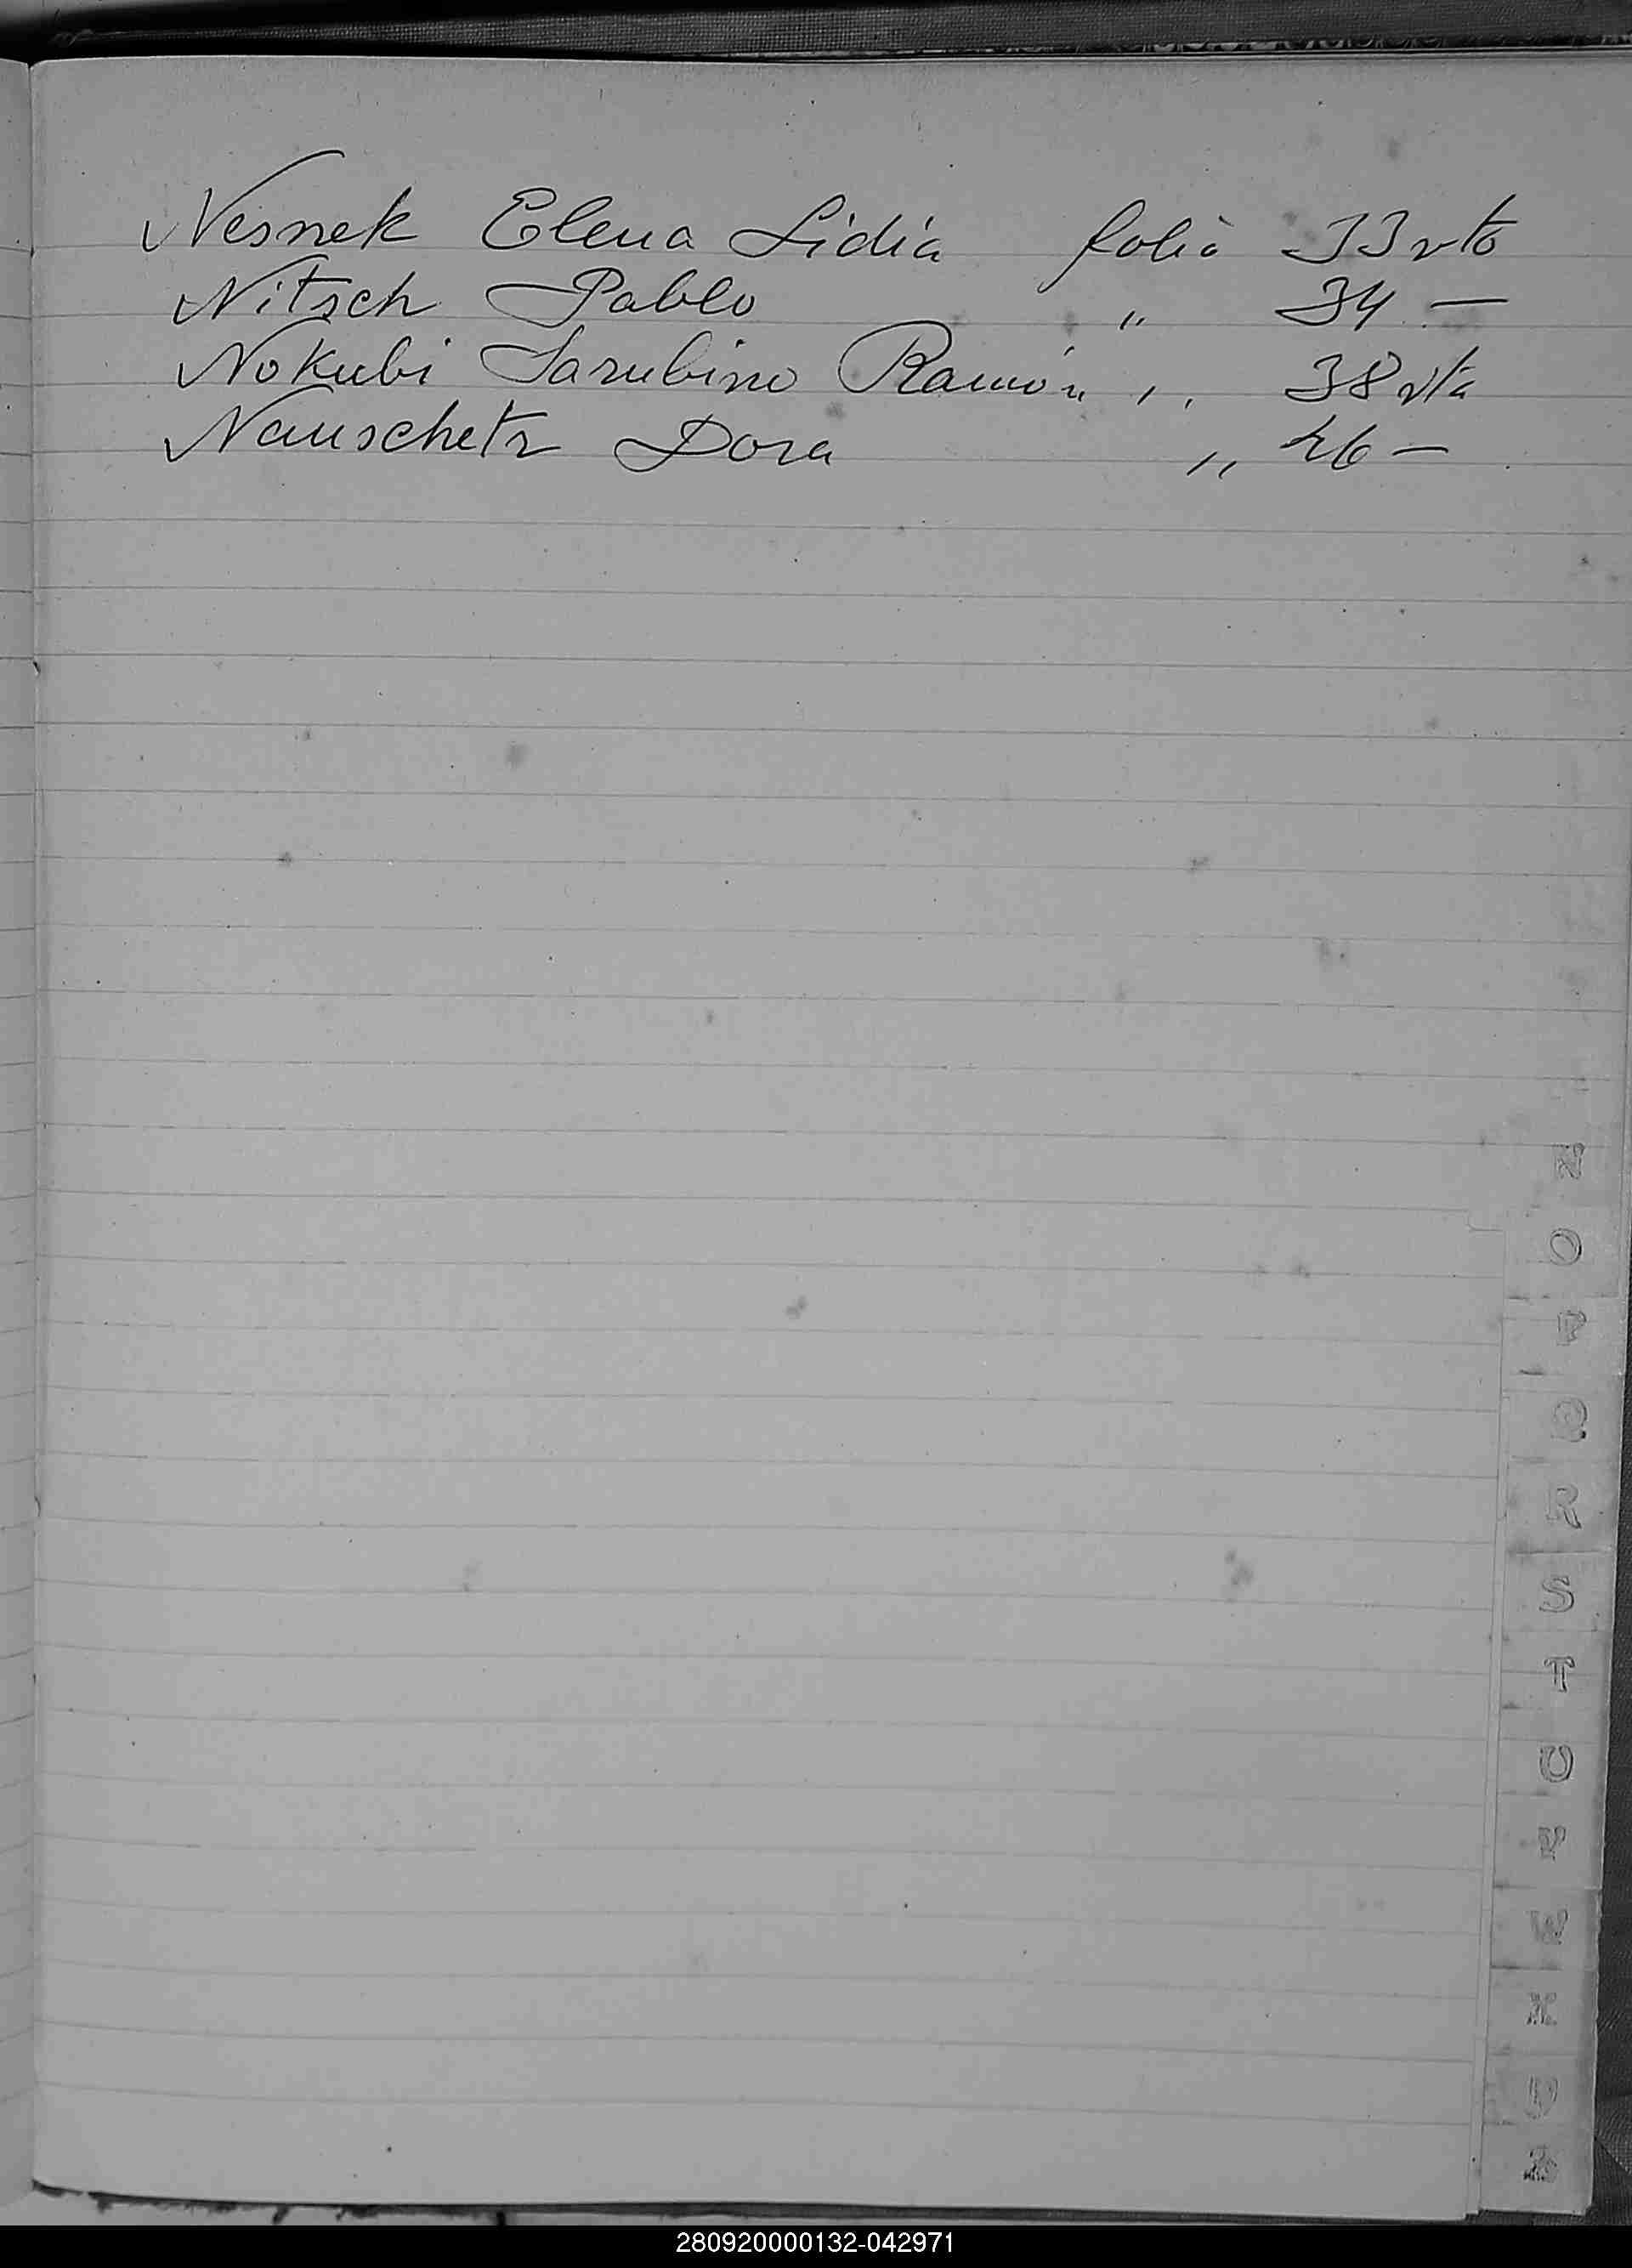 Nesnek Elena Lidia folio 33 vto
Nitsch Pablo " 34 —
Nokubi Sarubino Ramón " 38 vta
Nauschetz Dora " 46 —
N
O
P
Q
R
S
T
U
V
W
X
Y
Z
280920000132-042971